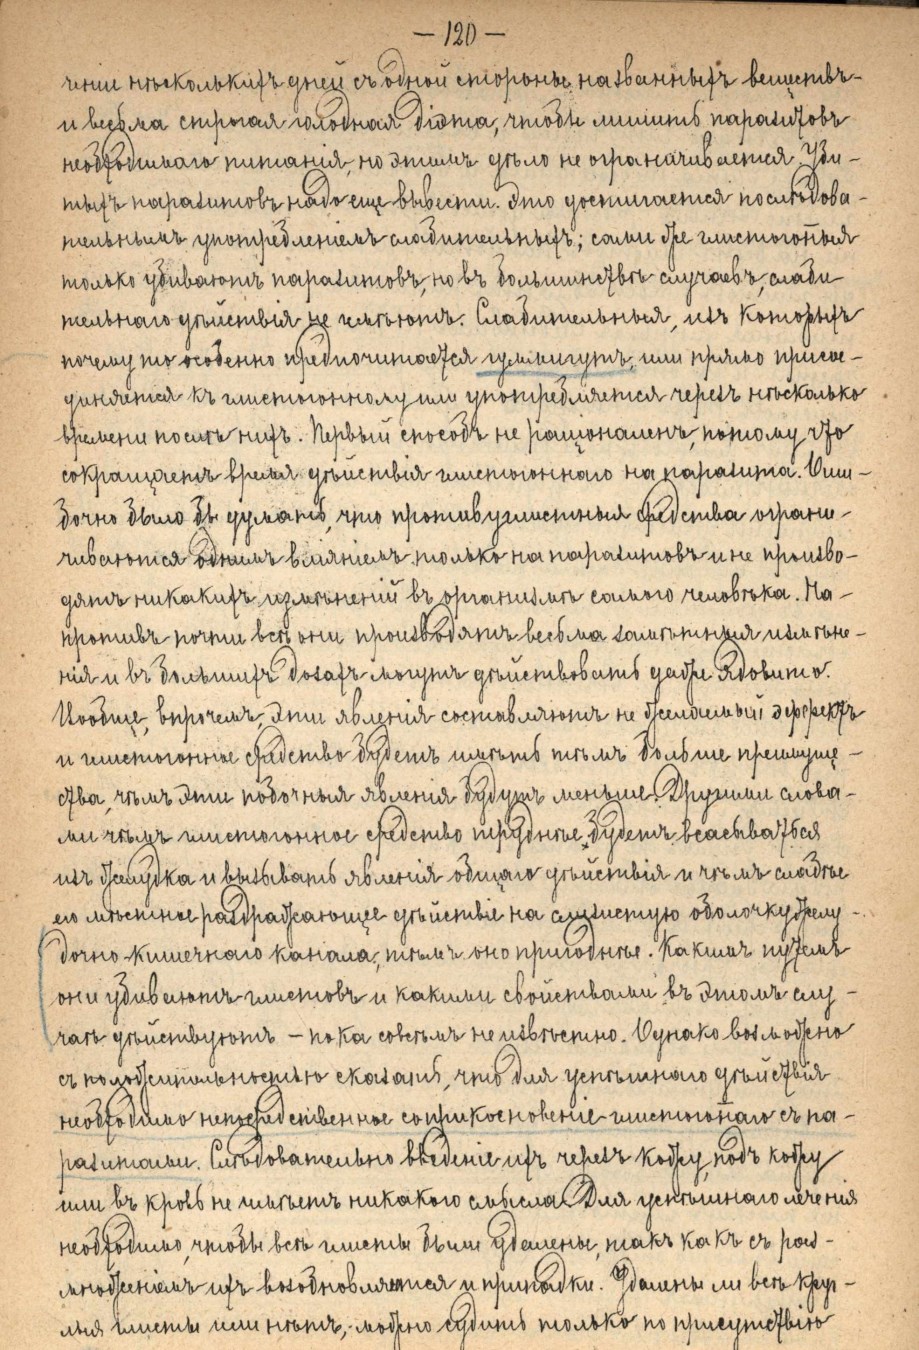 — 120 —
ченіи нѣсколькихъ дней съ одной стороны названныхъ веществъ-
и весьма строгая голодная діэта, чтобы лишить паразитовъ
необходимаго питанія, но этимъ дѣло не ограничивается. Уби-
тыхъ паразитовъ надо еще вывести. Это достигается послѣдова-
тельнымъ употребленіемъ слабительныхъ; сами же глистогонныя
только убиваютъ паразитовъ, но въ большинствѣ случаевъ, слаби
тельнаго дѣйствія не имѣютъ. Слабительныя, изъ которыхъ
почему то особенно предпочитается гуммигутъ, или прямо присое-
диняется къ глистогонному или употребляется черезъ нѣсколько
времени послѣ нихъ. Первый способъ не раціоналенъ, потому что
сокращаетъ время дѣйствія глистогоннаго на паразита. Оши-
бочно было бы думать, что противуглистныя средства ограни-
чиваются однимъ вліяніемъ только на паразитовъ и не произво-
дятъ никакихъ измѣненій въ организмѣ самого человѣка. На-
противъ почти всѣ они производятъ весьма замѣтныя измѣне-
нія и въ большихъ дозахъ могутъ дѣйствовать даже ядовито.
Вообще, впрочемъ, эти явленія составляютъ не желаемый эффектъ
и глистогонное средство будетъ имѣть тѣмъ больше преимуще-
ства, чѣмъ эти побочныя явленія будутъ меньше. Другими слова-
ми чѣмъ глистогонное средство труднѣе будетъ всасываться
изъ желудка и вызывать явленія общаго дѣйствія и чѣмъ слабѣе
его мѣстное раздражающее дѣйствіе на слизистую оболочку желу-
дочно-кишечнаго канала, тѣмъ оно пригоднѣе. Какимъ путемъ
они убиваютъ глистовъ и какими свойствами въ этомъ слу-
чаѣ дѣйствуютъ — пока совсѣмъ не извѣстно. Однако возможно
съ положительностью сказать, что для успѣшнаго дѣйствія
необходимо непосредственное соприкосновеніе глистогоннаго съ па-
разитами. Слѣдовательно введеніе ихъ черезъ кожу, подъ кожу
или въ кровь не имѣетъ никакого смысла. Для успѣшнаго лѣченія
необходимо, чтобы всѣ глисты были удалены, такъ какъ съ раз-
множеніемъ ихъ возобновляются и припадки. Удалены ли всѣ круг-
лыя глисты или нѣтъ, можно судить только по присутствію